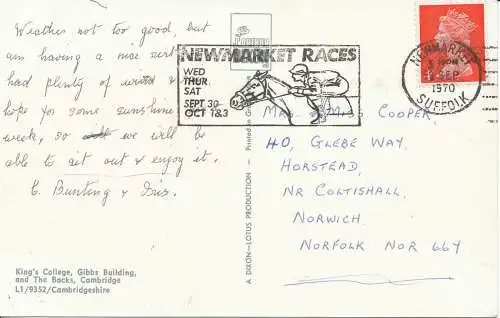 Weather not too good, but
am having a nice
had plenty of wind &
hope for some sunshine
week, so we will be
able to sit out & enjoy it.
C. Bunting & Iris.
King's College, Gibbs Building,
and The Backs, Cambridge
L1/9352/Cambridgeshire
A DIXON-LOTUS PRODUCTION - Printed in
NEWMARKET RACES
WED
THUR
SAT
SEPT 30
OCT 1&3
NEWMARKET
SEP
1970
SUFFOLK
Cooper,
40, GLEBE WAY,
HORSTEAD,
NR COLTISHALL,
NORWICH.
NORFOLK NOR 66Y